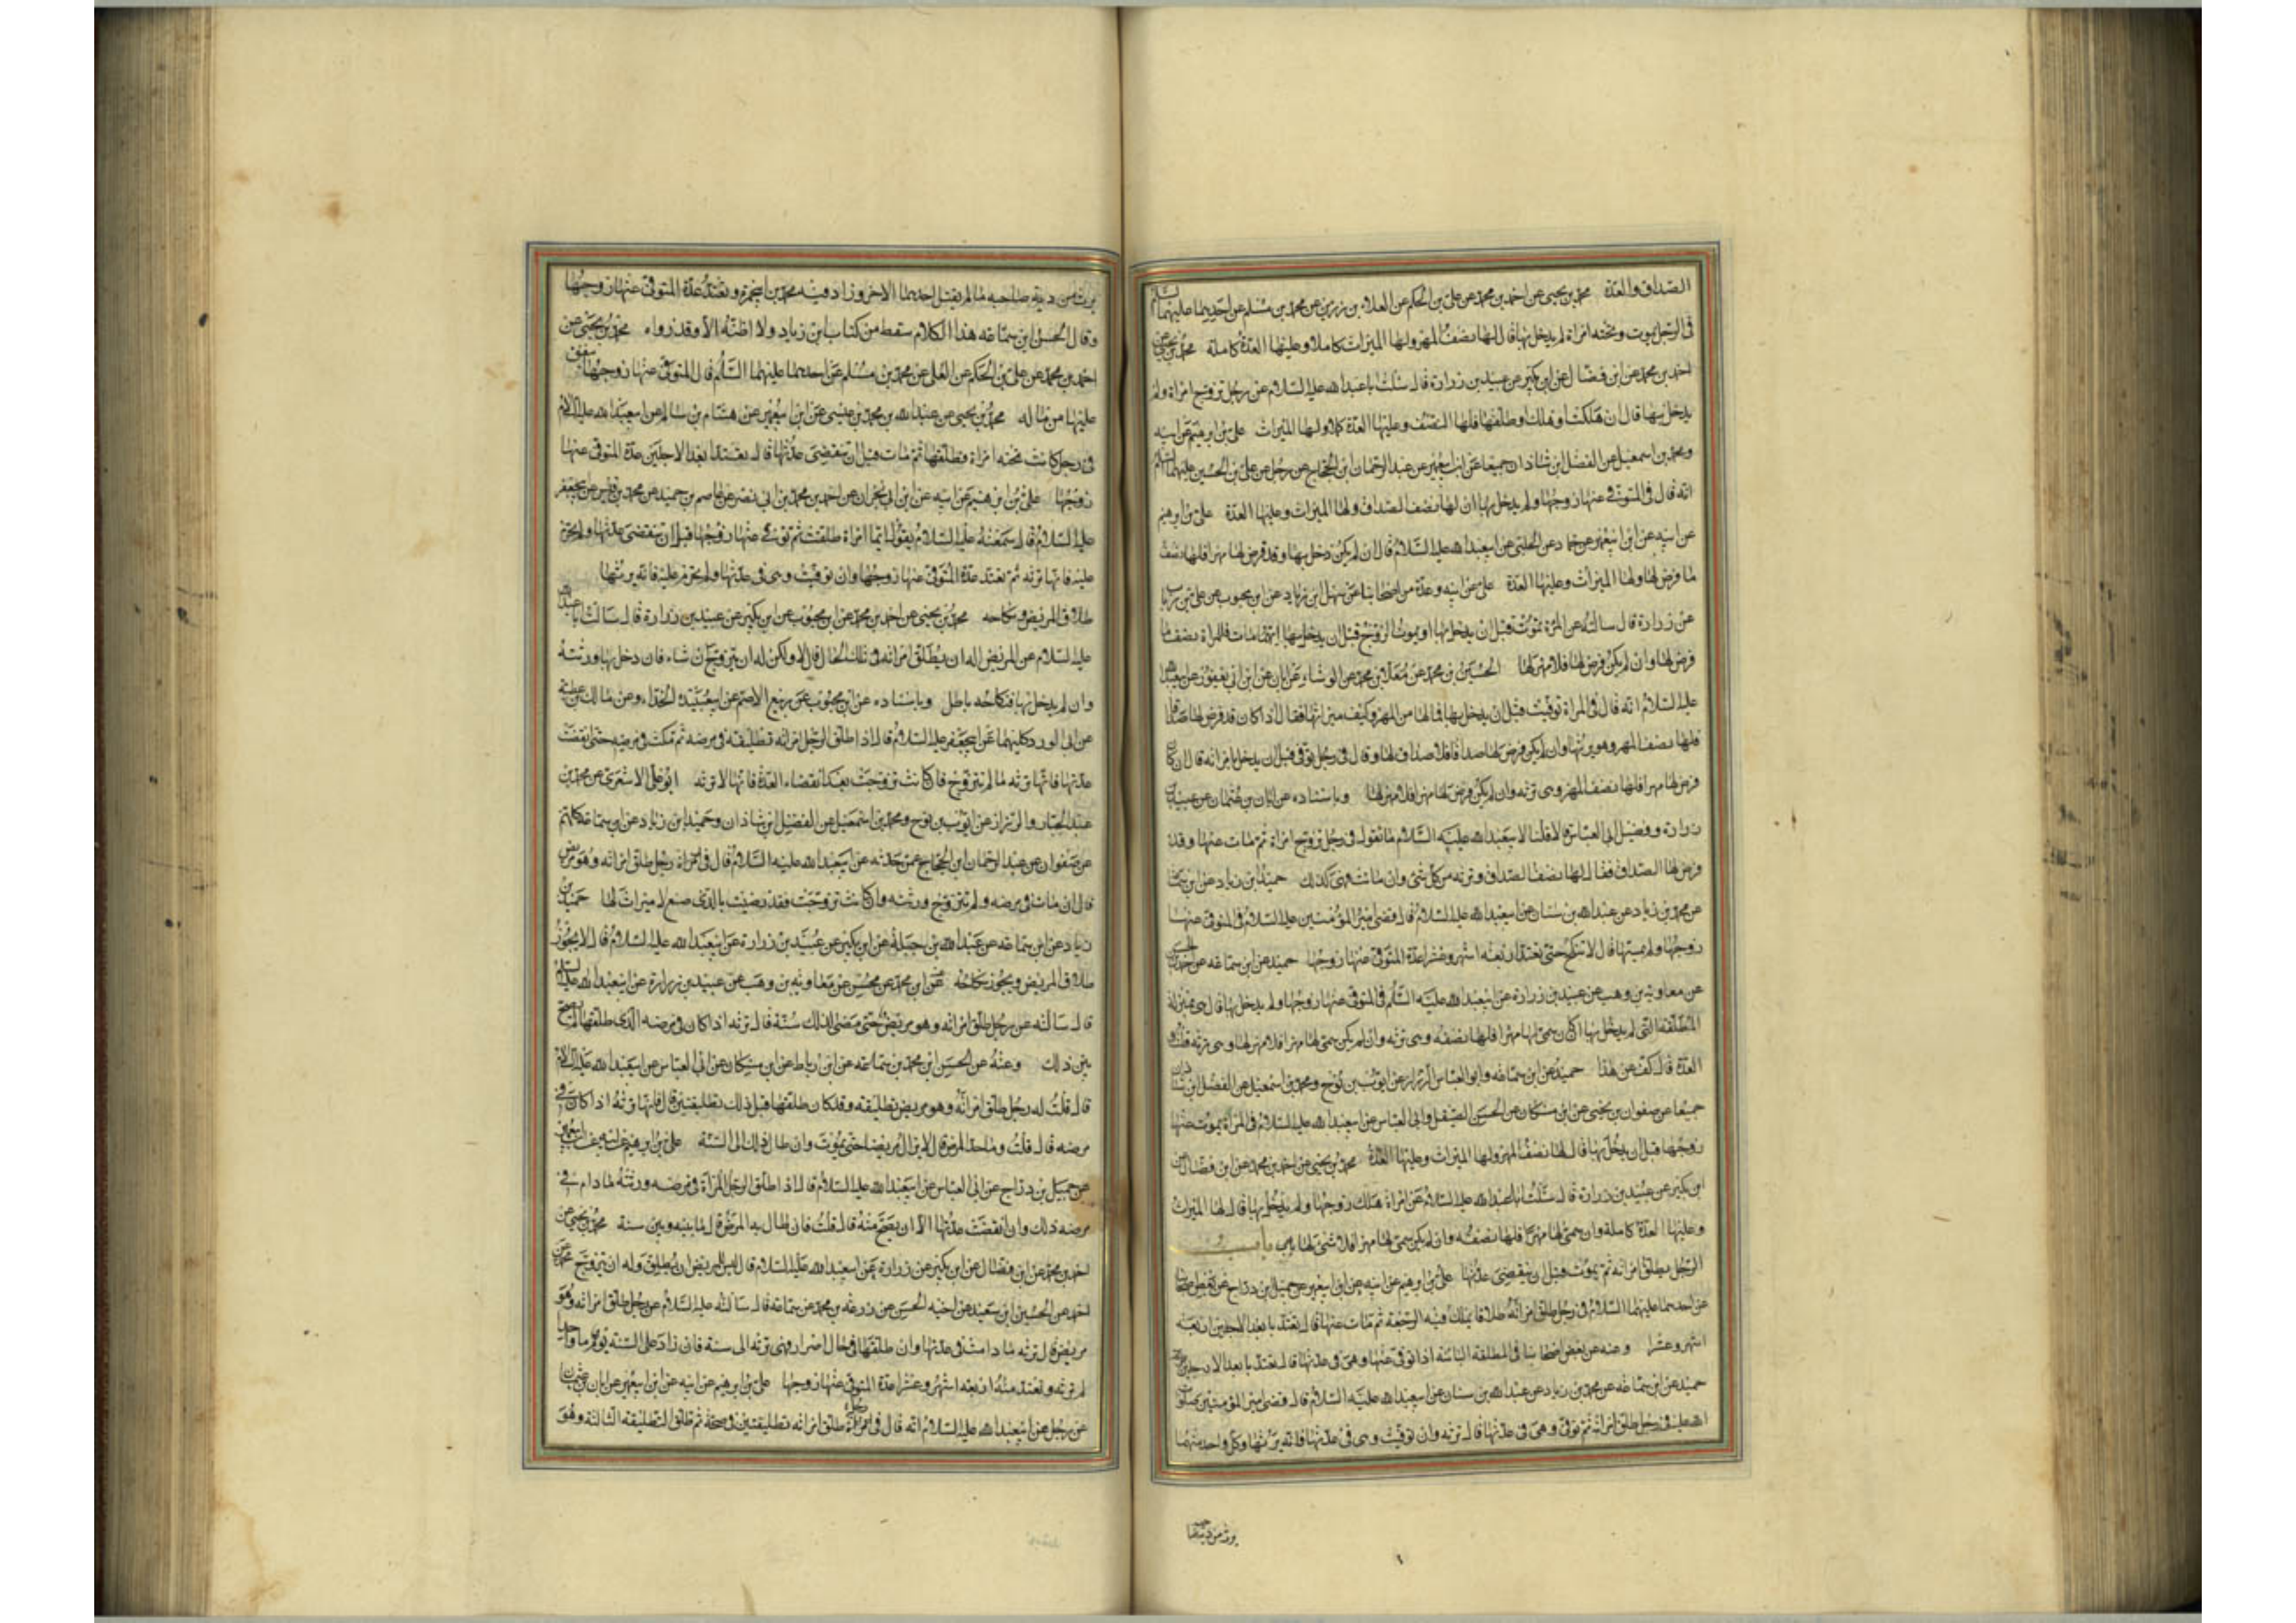 الصداق والعدة محمد بن يحيى عن احمد بن محمد عن على بن الحكم عن العلاء بن رزين عن محمد بن مسلم عن احدهما عليهما السلام
فى الرجل يموت وتحته امراة لم يدخل بها قال لها نصف المهر ولها الميراث كاملا وعليها العدة كاملة محمد بن يحيى عن
احمد بن محمد عن ابن فضال عن ابن بكير عن عبيد بن زرارة قال سئلت ابا عبد الله عليه السلام عن رجل تزوج امراة ولم
يدخل بها قال ان هلكت او هلك او طلقها فلها النصف وعليها العدة كملا ولها الميراث على بن ابرهيم عن ابيه
ومحمد بن اسمعيل عن الفضل بن شاذان جميعا عن ابن ابى عمير عن عبد الرحمان ابن الحجاج عن رجل عن على بن الحسين عليهما السلام
انه قال فى المتوفى عنها زوجها ولم يدخل بها ان لها نصف الصداق ولها الميراث وعليها العدة على بن ابرهيم
عن ابيه عن ابن ابى عمير عن حماد عن الحلبى عن ابى عبد الله عليه السلام قال ان لم يكن دخل بها وقد فرض لها مهرا فلها نصف
ما فرض لها ولها الميراث وعليها العدة على عن ابيه وعدة من اصحابنا عن سهل ابن زياد عن ابن محبوب عن على بن رياب
عن زرارة قال سالته عن المرة تموت قبل ان يدخل بها او يموت الزوج قبل ان يدخل بها ايتهما مات فللمراة نصف ما
فرض لها وان لم يكن فرض لها فلا مهر لها الحسين بن محمد عن معلا بن محمد عن الوشاء عن ابان عن ابن ابى يعفور عن ابى عبد الله
عليه السلام انه قال فى المراة توفيت قبل ان يدخل بها فما لها من المهر وكيف ميراثها فقال اذا كان قد فرض لها صداقا
فلها نصف المهر وهو يرثها وان لم يكن فرض لها صداقا فلا صداق لها وقال فى رجل توفى قبل ان يدخل بامراته قال ان كان
فرض لها مهرا فلها نصف المهر وهى ترثه وان لم يكن فرض لها مهرا فلا مهر لها وباسناده عن ابان بن عثمان عن عبيد بن
زرارة وفضيل ابى العباس قالا قلنا لابى عبد الله عليه السلام ما تقول فى رجل تزوج امراة ثم مات عنها وقد
فرض لها الصداق فقال لها نصف الصداق وترثه من كل شئ وان ماتت فهى كذلك حميد ابن زياد عن ابن سماعة
عن محمد بن زياد عن عبد الله بن سنان عن ابى عبد الله عليه السلام قال قضى امير المؤمنين عليه السلام فى المتوفى عنها
زوجها ولم يمسها قال لا تنكح حتى تعتد اربعة اشهر وعشرا عدة المتوفى عنها زوجها حميد عن ابن سماعه عن احمد بن الحسن
عن معاوية بن وهب عن عبيد بن زرارة عن ابى عبد الله عليه السلم فى المتوفى عنها زوجها ولم يدخل بها قال هى بمنزلة
المطلقة التى لم يدخل بها ان كان سمى لها مهرا فلها نصفه وهى ترثه وان لم يكن سمى لها مهرا فلا مهر لها وهى ترثه قلت و
العدة قال كف عن هذا حميد عن ابن سماعه وابو العباس الرزاز عن ايوب بن نوح ومحمد بن اسمعيل عن الفضل ابن شاذان
جميعا عن صفوان بن يحيى عن ابن مسكان عن الحسن الصيقل وابى العباس عن ابى عبد الله عليه السلام فى المراة يموت عنها
زوجها قبل ان يدخل بها قال لها نصف المهر ولها الميراث وعليها العدة محمد بن يحيى عن احمد بن محمد عن ابن فضال عن
ابن بكير عن عبيد بن زرارة قال سئلت ابا عبد الله عليه السلام عن امراة هلك زوجها ولم يدخل بها قال لها الميراث
وعليها العدة كاملة وان سمى لها مهرا فلها نصفه وان لم يكن سمى لها مهرا فلا شئ لها باب
الرجل يطلق امراته ثم يموت قبل ان تنقضى عدتها على بن ابرهيم عن ابيه عن ابن ابى عمير عن جميل بن دراج عن بعض اصحابنا
عن احدهما عليهما السلام فى رجل طلق امراته طلاقا يملك فيه الرجعة ثم مات عنها قال تعتد بابعد الاجلين اربعة
اشهر وعشرا وعنه عن بعض اصحابنا فى المطلقة البائنة اذا توفى عنها وهى فى عدتها قال تعتد بابعد الاجلين
حميد عن ابن سماعه عن محمد بن زياد عن عبد الله بن سنان عن ابى عبد الله عليه السلام قال قضى امير المؤمنين صلوات
الله عليه فى رجل طلق امراته ثم توفى وهى فى عدتها قال ترثه وان توفيت وهى فى عدتها فانه يرثها وكل واحد منهما
يرث من دية
يرث من دية صاحبه ما لم يقتل احدهما الاخر وزاد فيه محمد بن ابى حمزة وتعتد عدة المتوفى عنها زوجها
وقال الحسن ابن سماعه هذا الكلام سقط من كتاب ابن زياد ولا اظنه الا وقد رواه محمد بن يحيى عن
احمد بن محمد عن على بن الحكم عن العلى عن محمد بن مسلم عن احدهما عليهما السلم قال المتوفى عنها زوجها ينفق
عليها من ماله محمد بن يحيى عن عبد الله بن محمد بن عيسى عن ابن ابى عمير عن هشام بن سالم عن ابى عبد الله عليه السلام
فى رجل كانت تحته امراة فطلقها ثم مات قبل ان تنقضى عدتها قال تعتد ابعد الاجلين عدة المتوفى عنها
زوجها على بن ابرهيم عن ابيه عن ابن ابى نجران عن احمد بن محمد بن ابى نصر عن عاصم بن حميد عن محمد بن قيس عن ابى جعفر
عليه السلام قال سمعته عليه السلام يقول ايما امراة طلقت ثم توفى عنها زوجها قبل ان تنقضى عدتها ولم تحرم
عليه فانها ترثه ثم تعتد عدة المتوفى عنها زوجها وان توفيت وهى فى عدتها ولم تحرم عليه فانه يرثها
طلاق المريض ونكاحه محمد بن يحيى عن احمد بن محمد عن ابن محبوب عن ابن بكير عن عبيد بن زرارة قال سالت ابا عبد الله
عليه السلام عن المريض اله ان يطلق امراته فى تلك الحال قال لا ولكن له ان يتزوج ان شاء فان دخل بها ورثته
وان لم يدخل بها فنكاحه باطل وباسناده عن ابن محبوب عن ربيع الاصم عن ابى عبيده الحذاء وعن مالك بن عطية
عن ابى الورد كليهما عن ابى جعفر عليه السلام قال اذا طلق الرجل امراته تطليقة فى مرضه ثم مكث فى مرضه حتى انقضت
عدتها فانها ترثه ما لم تتزوج فان كانت تزوجت بعد انقضاء العدة فانها لا ترثه ابو على الاشعرى عن محمد بن
عبد الجبار والرزاز عن ايوب بن نوح ومحمد بن اسمعيل عن الفضل ابن شاذان وحميد ابن زياد عن ابن سماعه كلهم
عن صفوان عن عبد الرحمان ابن الحجاج عمن حدثه عن ابى عبد الله عليه السلام قال فى رجل طلق امراته وهو مريض
قال ان مات فى مرضه ولم تتزوج ورثته وان كانت تزوجت فقد رضيت بالذى صنع لا ميراث لها حميد بن
زياد عن ابن سماعه عن عبد الله بن جبلة عن ابن بكير عن عبيد بن زرارة عن ابى عبد الله عليه السلام قال لا يجوز
طلاق المريض ويجوز نكاحه عن ابن محمد عن محسن عن معاويه بن وهب عن عبيد بن زرارة عن ابى عبد الله عليه السلم
قال سالته عن رجل طلق امراته وهو مريض حتى مضى لذلك سنة قال ترثه اذا كان فى مرضه الذى طلقها لم يصح
بين ذلك وعنه عن الحسن ابن محمد بن سماعه عن ابن رباط عن ابن مسكان عن ابى العباس عن ابى عبد الله عليه السلام
قال قلت له رجل طلق امراته وهو مريض تطليقة وقد كان طلقها قبل ذلك تطليقتين قال فانها ترثه اذا كان فى
مرضه قال قلت وما حد المرض قال لا يزال مريضا حتى يموت وان طال ذلك الى السنة على بن ابرهيم عن ابيه عن ابن ابى عمير
عن جميل بن دراج عن ابى العباس عن ابى عبد الله عليه السلام قال اذا طلق الرجل المراة فى مرضه ورثته ما دام فى
مرضه ذلك وان انقضت عدتها الا ان يصح منه قال قلت فان طال به المرض قال ما بينه وبين سنة محمد بن يحيى عن
احمد بن محمد عن ابن فضال عن ابن بكير عن زرارة عن ابى عبد الله عليه السلام قال ليس للمريض ان يطلق وله ان يتزوج محمد عن
احمد عن الحسين ابن سعيد عن اخيه الحسن عن زرعة بن محمد عن سماعه قال سالته عليه السلام عن رجل طلق امراته وهو
مريض قال ترثه ما دامت فى عدتها وان طلقها فى حال اضرار فهى ترثه الى سنة فان زاد على السنة يوم واحد
لم ترثه وتعتد منه اربعة اشهر وعشرا عدة المتوفى عنها زوجها على بن ابرهيم عن ابيه عن ابن ابى عمير عن ابان بن عثمان
عن رجل عن ابى عبد الله عليه السلام انه قال فى رجل طلق امراته تطليقتين فى صحة ثم طلق التطليقة الثالثة وهو